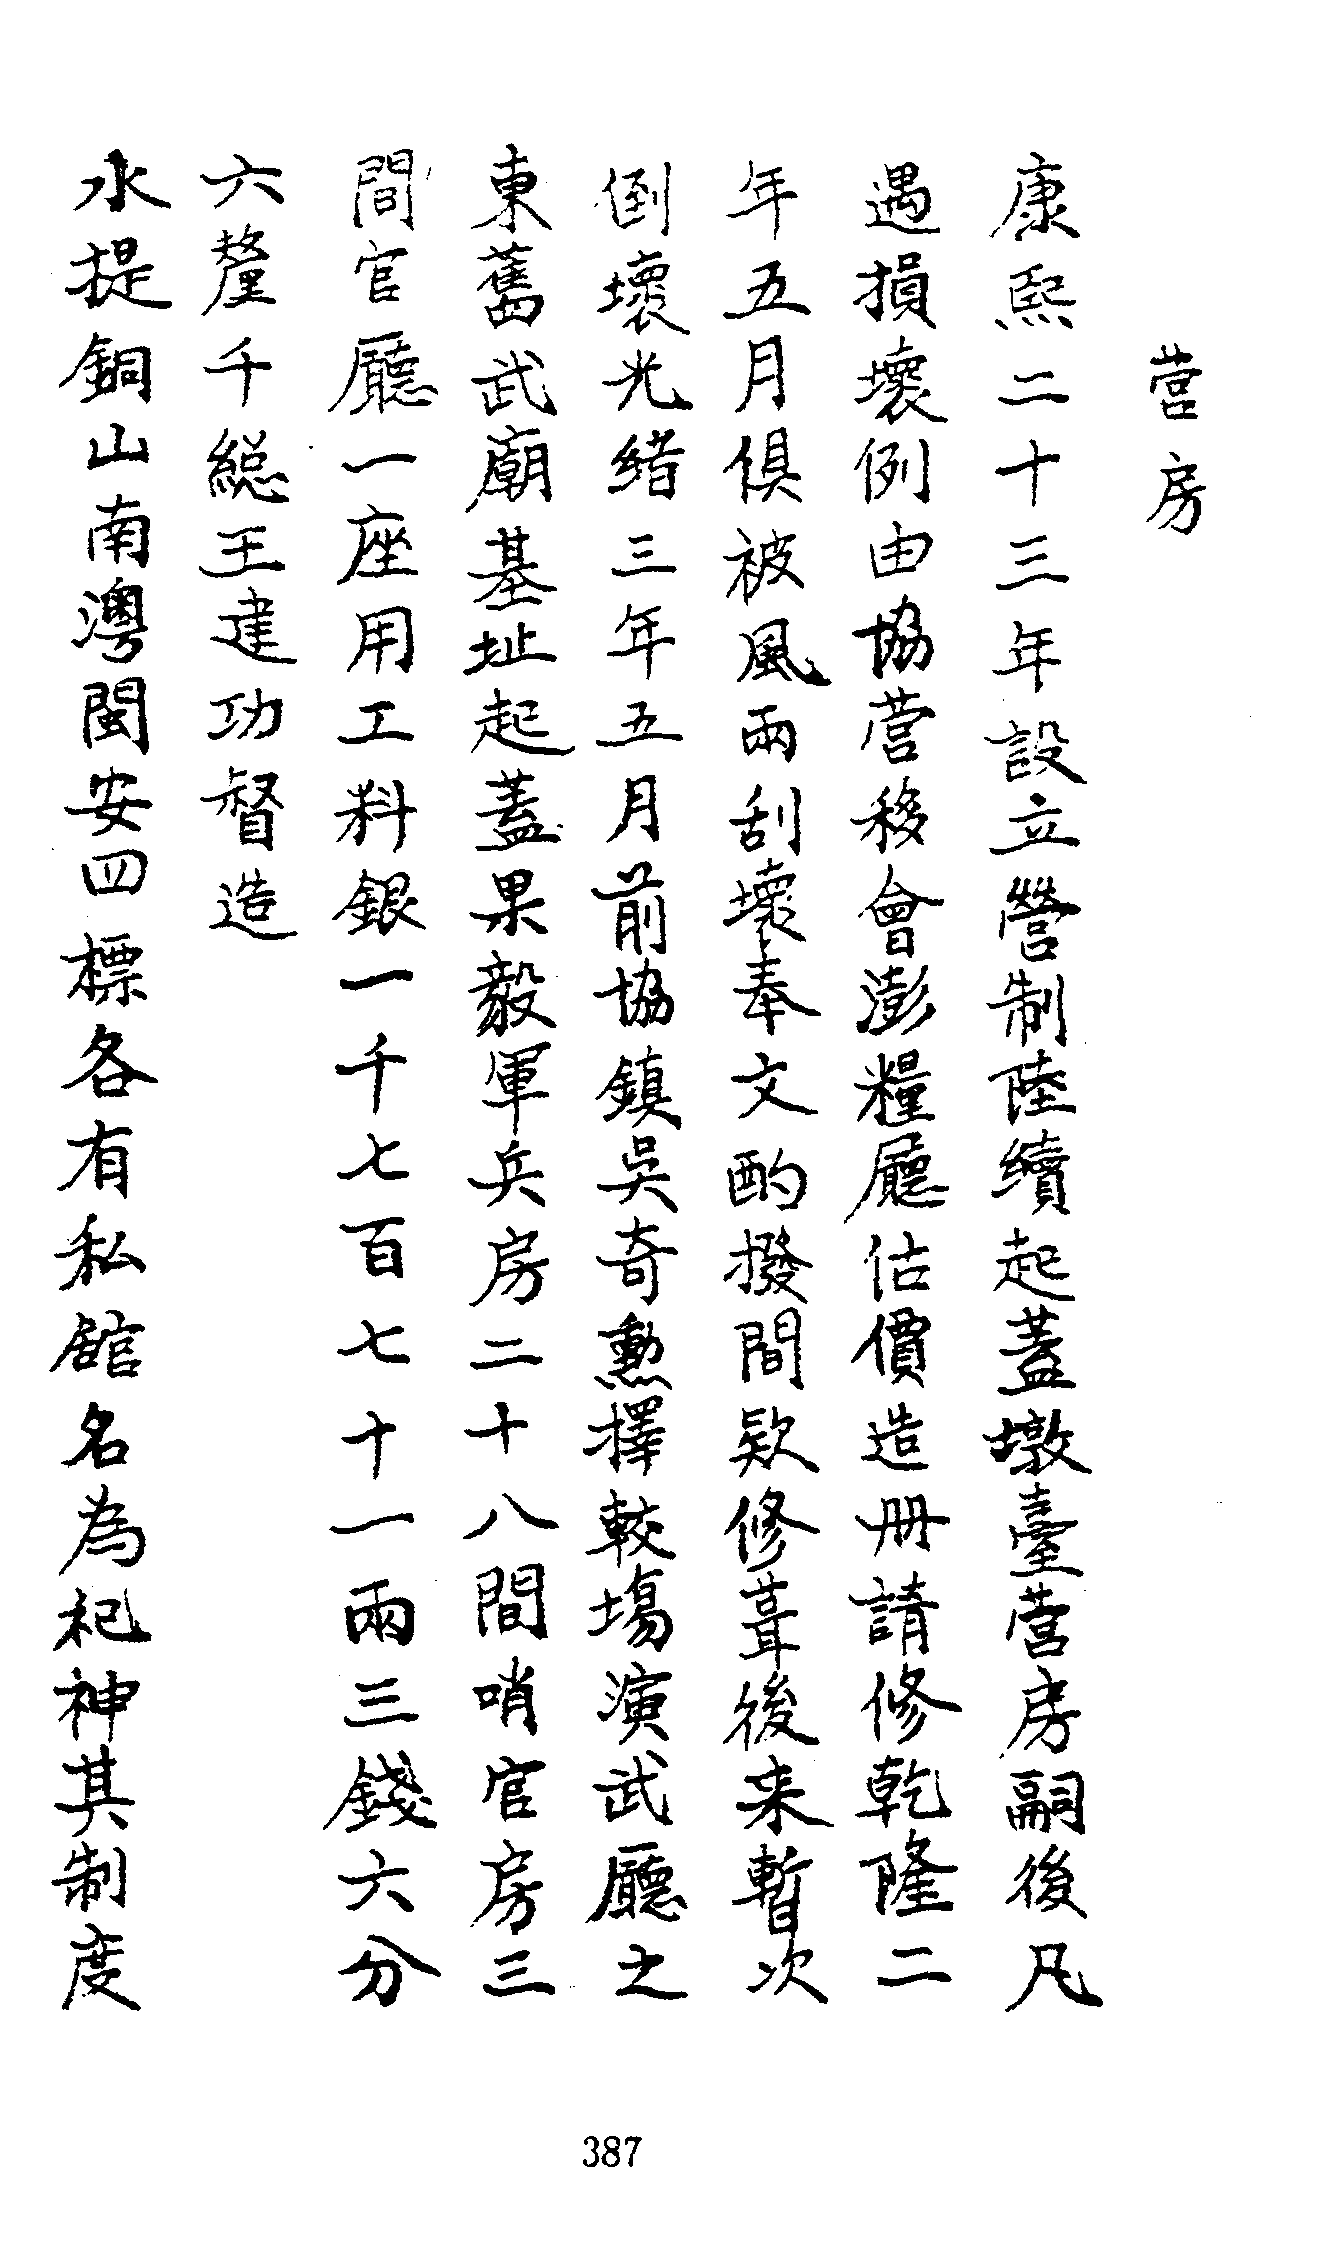 营房
康熙二十三年設立營制陸續起蓋墩臺营房嗣後凡
遇損壞例由協营移會澎糧廳估價造冊請修乾隆二
年五月俱被風雨刮壞奉文酌撥間欵修葺後来暫次
倒壞光绪三年五月前協鎮吳奇勳擇較塲演武廳之
東舊武廟基址起蓋果毅軍兵房二十八間哨官房三
間官廳一座用工料銀一千七百七十一兩三錢六分
六釐千総王建功督造
水提銅山南澳閩安四標各有私舘名為祀神其制度
387